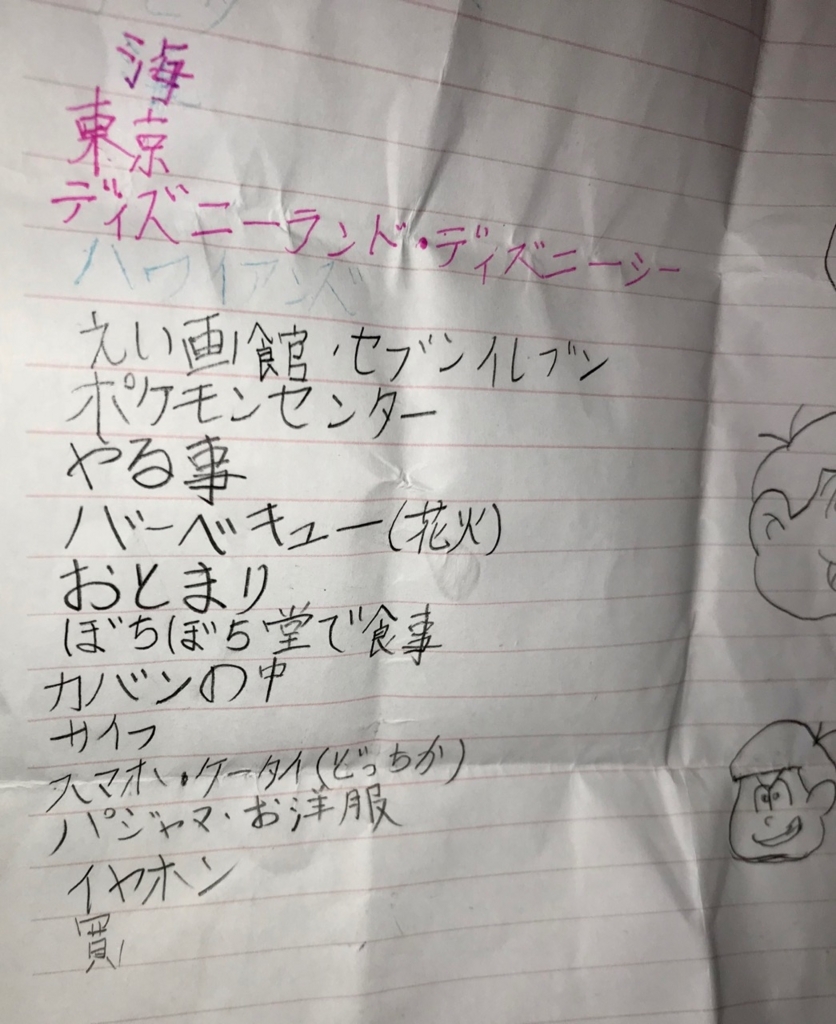 海
東京
ディズニーランド・ディズニーシー
ハワイアンズ
えい画館・セブンイレブン
ポケモンセンター
やる事
バーベキュー(花火)
おとまり
ぼちぼち堂で食事
カバンの中
サイフ
スマホ・ケータイ(どっちか)
パジャマ・お洋服
イヤホン
買